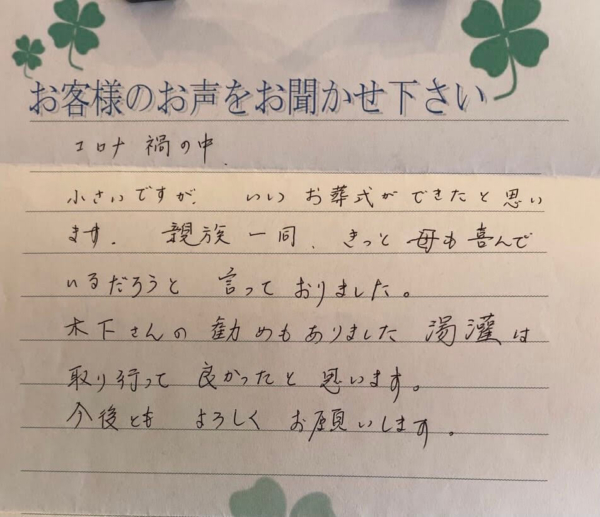 お客様のお声をお聞かせ下さい
コロナ禍の中.
小さいですが、いいお葬式ができたと思い
ます. 親族一同、きっと母も喜んで
いるだろうと言っておりました。
木下さんの勧めもありました湯灌は
取り行って良かったと思います。
今後ともよろしくお願いします。